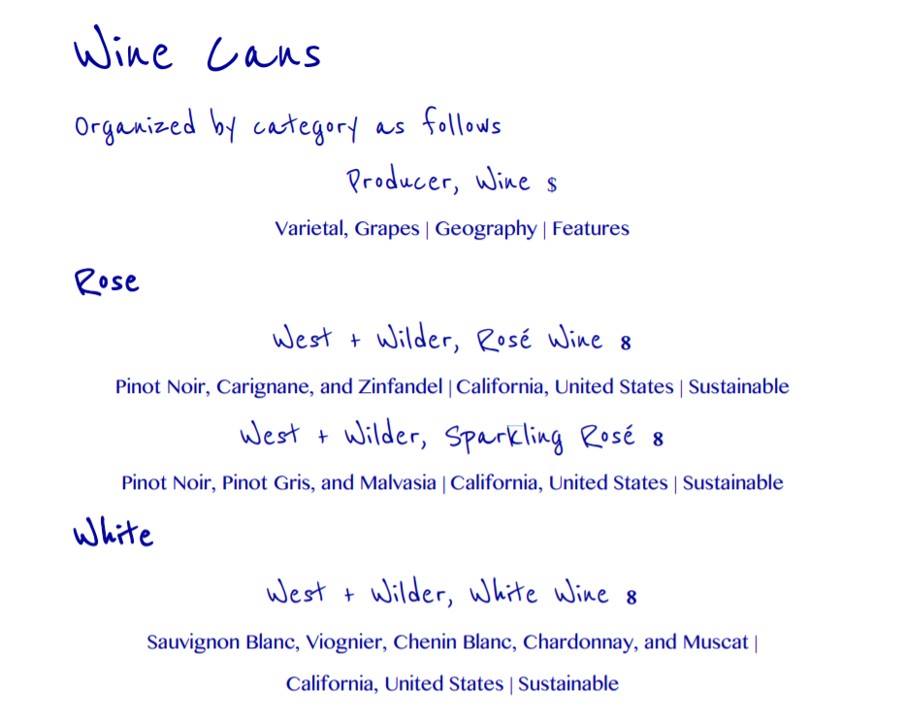 Wine Cans
Organized by category as follows
Producer, Wine $
Varietal, Grapes | Geography | Features
Rose
West + Wilder, Rosé Wine 8
Pinot Noir, Carignane, and Zinfandel | California, United States | Sustainable
West + Wilder, Sparkling Rosé 8
Pinot Noir, Pinot Gris, and Malvasia | California, United States | Sustainable
White
West + Wilder, White Wine 8
Sauvignon Blanc, Viognier, Chenin Blanc, Chardonnay, and Muscat |
California, United States | Sustainable